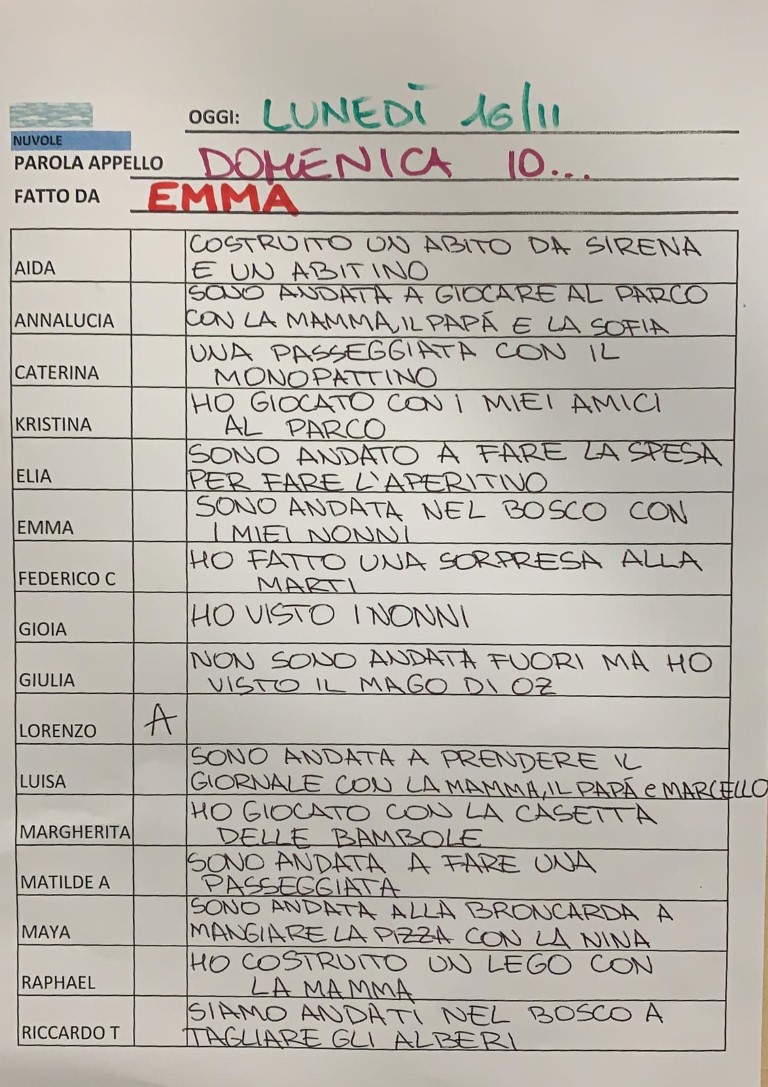 OGGI: LUNEDÌ 16/11
NUVOLE
PAROLA APPELLO DOMENICA IO...
FATTO DA EMMA
AIDA COSTRUITO UN ABITO DA SIRENA
E UN ABITINO
ANNALUCIA SONO ANDATA A GIOCARE AL PARCO
CON LA MAMMA, IL PAPÁ E LA SOFIA
CATERINA UNA PASSEGGIATA CON IL
MONOPATTINO
KRISTINA HO GIOCATO CON I MIEI AMICI
AL PARCO
ELIA SONO ANDATO A FARE LA SPESA
PER FARE L'APERITIVO
EMMA SONO ANDATA NEL BOSCO CON
I MIEI NONNI
FEDERICO C HO FATTO UNA SORPRESA ALLA
MARTI
GIOIA HO VISTO I NONNI
GIULIA NON SONO ANDATA FUORI MA HO
VISTO IL MAGO DI OZ
LORENZO A
LUISA SONO ANDATA A PRENDERE IL
GIORNALE CON LA MAMMA, IL PAPÁ e MARCELLO
MARGHERITA HO GIOCATO CON LA CASETTA
DELLE BAMBOLE
MATILDE A SONO ANDATA A FARE UNA
PASSEGGIATA
MAYA SONO ANDATA ALLA BRONCARDA A
MANGIARE LA PIZZA CON LA NINA
RAPHAEL HO COSTRUITO UN LEGO CON
LA MAMMA
RICCARDO T SIAMO ANDATI NEL BOSCO A
TAGLIARE GLI ALBERI